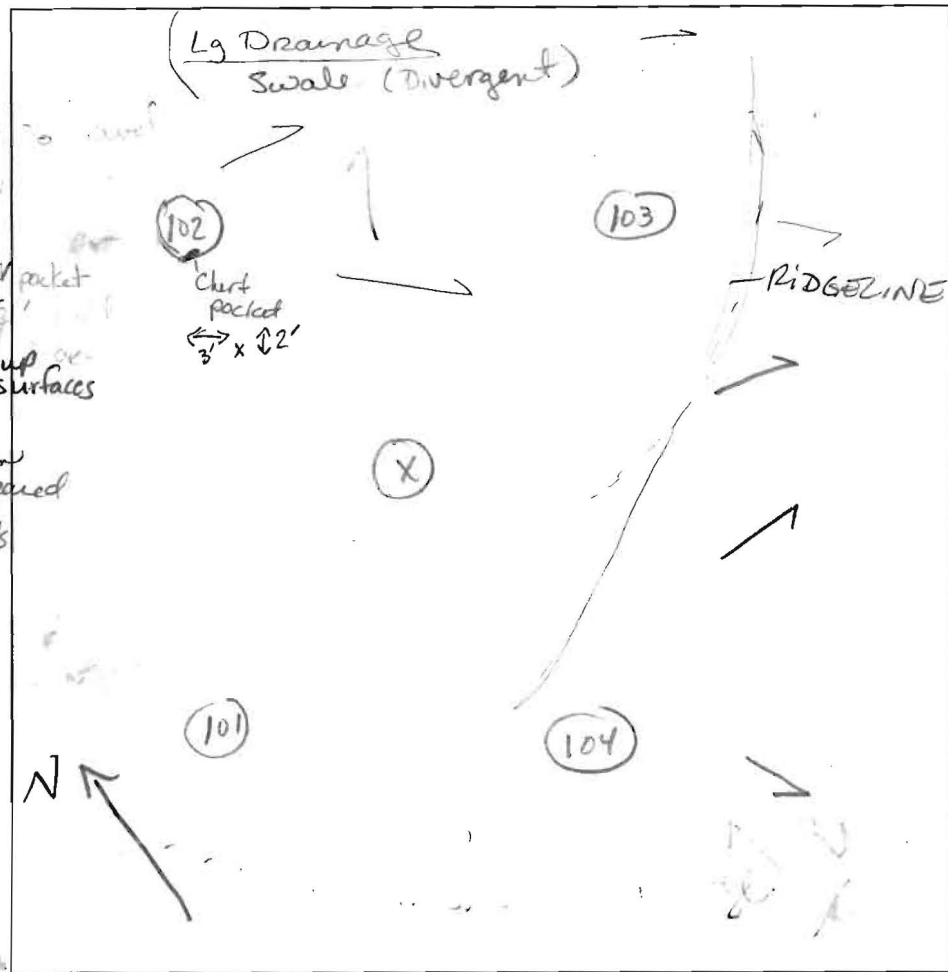 Lg Drainage
Swale (Divergent)
102
103
Chert
pocket
3' x 2'
RIDGELINE
pocket
up
surfaces
X
101
104
N